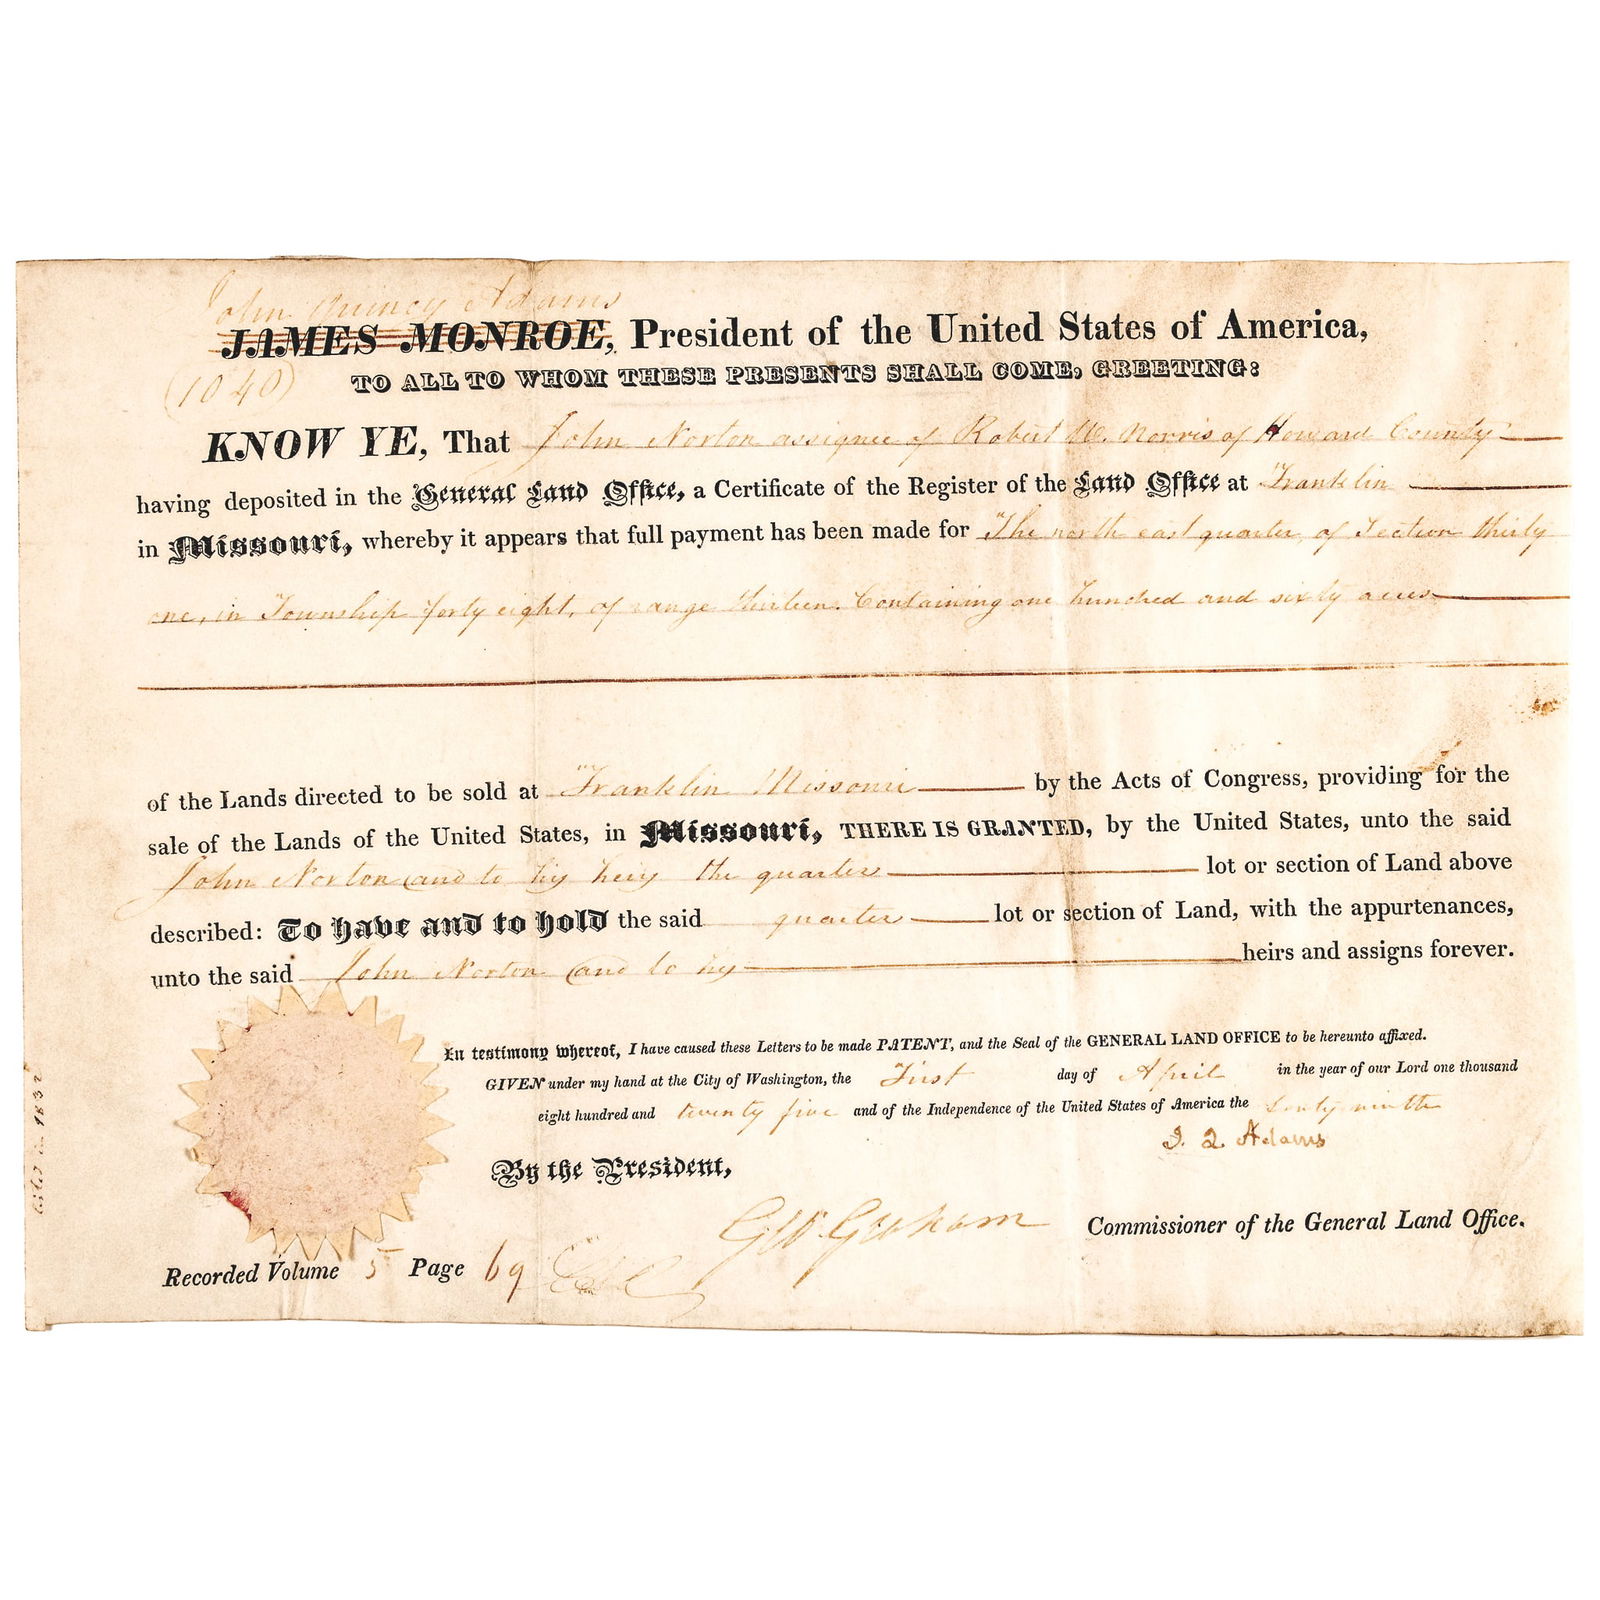 John Quincy Adams
JAMES MONROE, President of the United States of America,
(1040)
TO ALL TO WHOM THESE PRESENTS SHALL COME, GREETING:
KNOW YE, That John Norton assignee of Robert W. Norris of Howard County
having deposited in the General Land Office, a Certificate of the Register of the Land Office at Franklin
in Missouri, whereby it appears that full payment has been made for The north east quarter, of Section thirty
one, in Township forty eight, of range thirteen. Containing one hundred and sixty acres
of the Lands directed to be sold at Franklin Missouri by the Acts of Congress, providing for the
sale of the Lands of the United States, in Missouri, THERE IS GRANTED, by the United States, unto the said
John Norton and to his heirs the quarter lot or section of Land above
described: To have and to hold the said quarter lot or section of Land, with the appurtenances,
unto the said John Norton and to his heirs and assigns forever.
In testimony whereof, I have caused these Letters to be made PATENT, and the Seal of the GENERAL LAND OFFICE to be hereunto affixed.
GIVEN under my hand at the City of Washington, the First day of April in the year of our Lord one thousand
eight hundred and twenty five and of the Independence of the United States of America the forty ninth
J. Q. Adams
By the President,
Geo. Graham Commissioner of the General Land Office.
Recorded Volume 5 Page 69